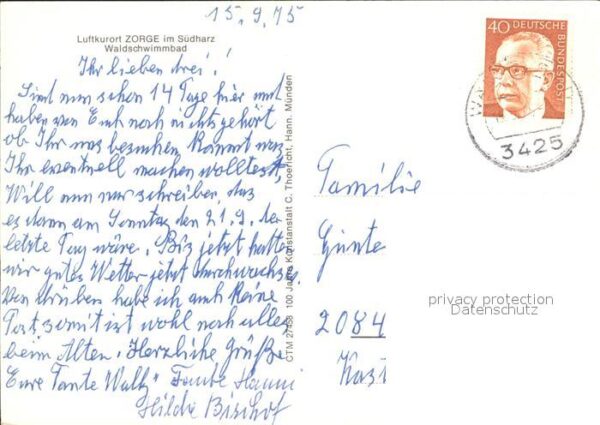 15.9.75
Luftkurort ZORGE im Südharz
Waldschwimmbad
Ihr lieben drei!
Sind nun schon 14 Tage hier und
haben von Euch noch nichts gehört
ob Ihr uns besuchen kommt was
Ihr eventuell machen wolltest,
Will nun nur schreiben, das
es dann am Sonntag den 21.9. der
letzte Tag wäre. Bis jetzt hatten
wir gutes Wetter jetzt durchwachsen.
Von drüben habe ich auch keine
Post, somit ist wohl noch alles
beim Alten. Herzliche Grüße
Eure Tante Wally Tante Hanni
Hilde Bischof
CTM 27458 100 Jahre Kunstanstalt C. Thoericht, Hann. Münden
40 DEUTSCHE BUNDESPOST
3425
Familie
Günte
2084
privacy protection
Datenschutz